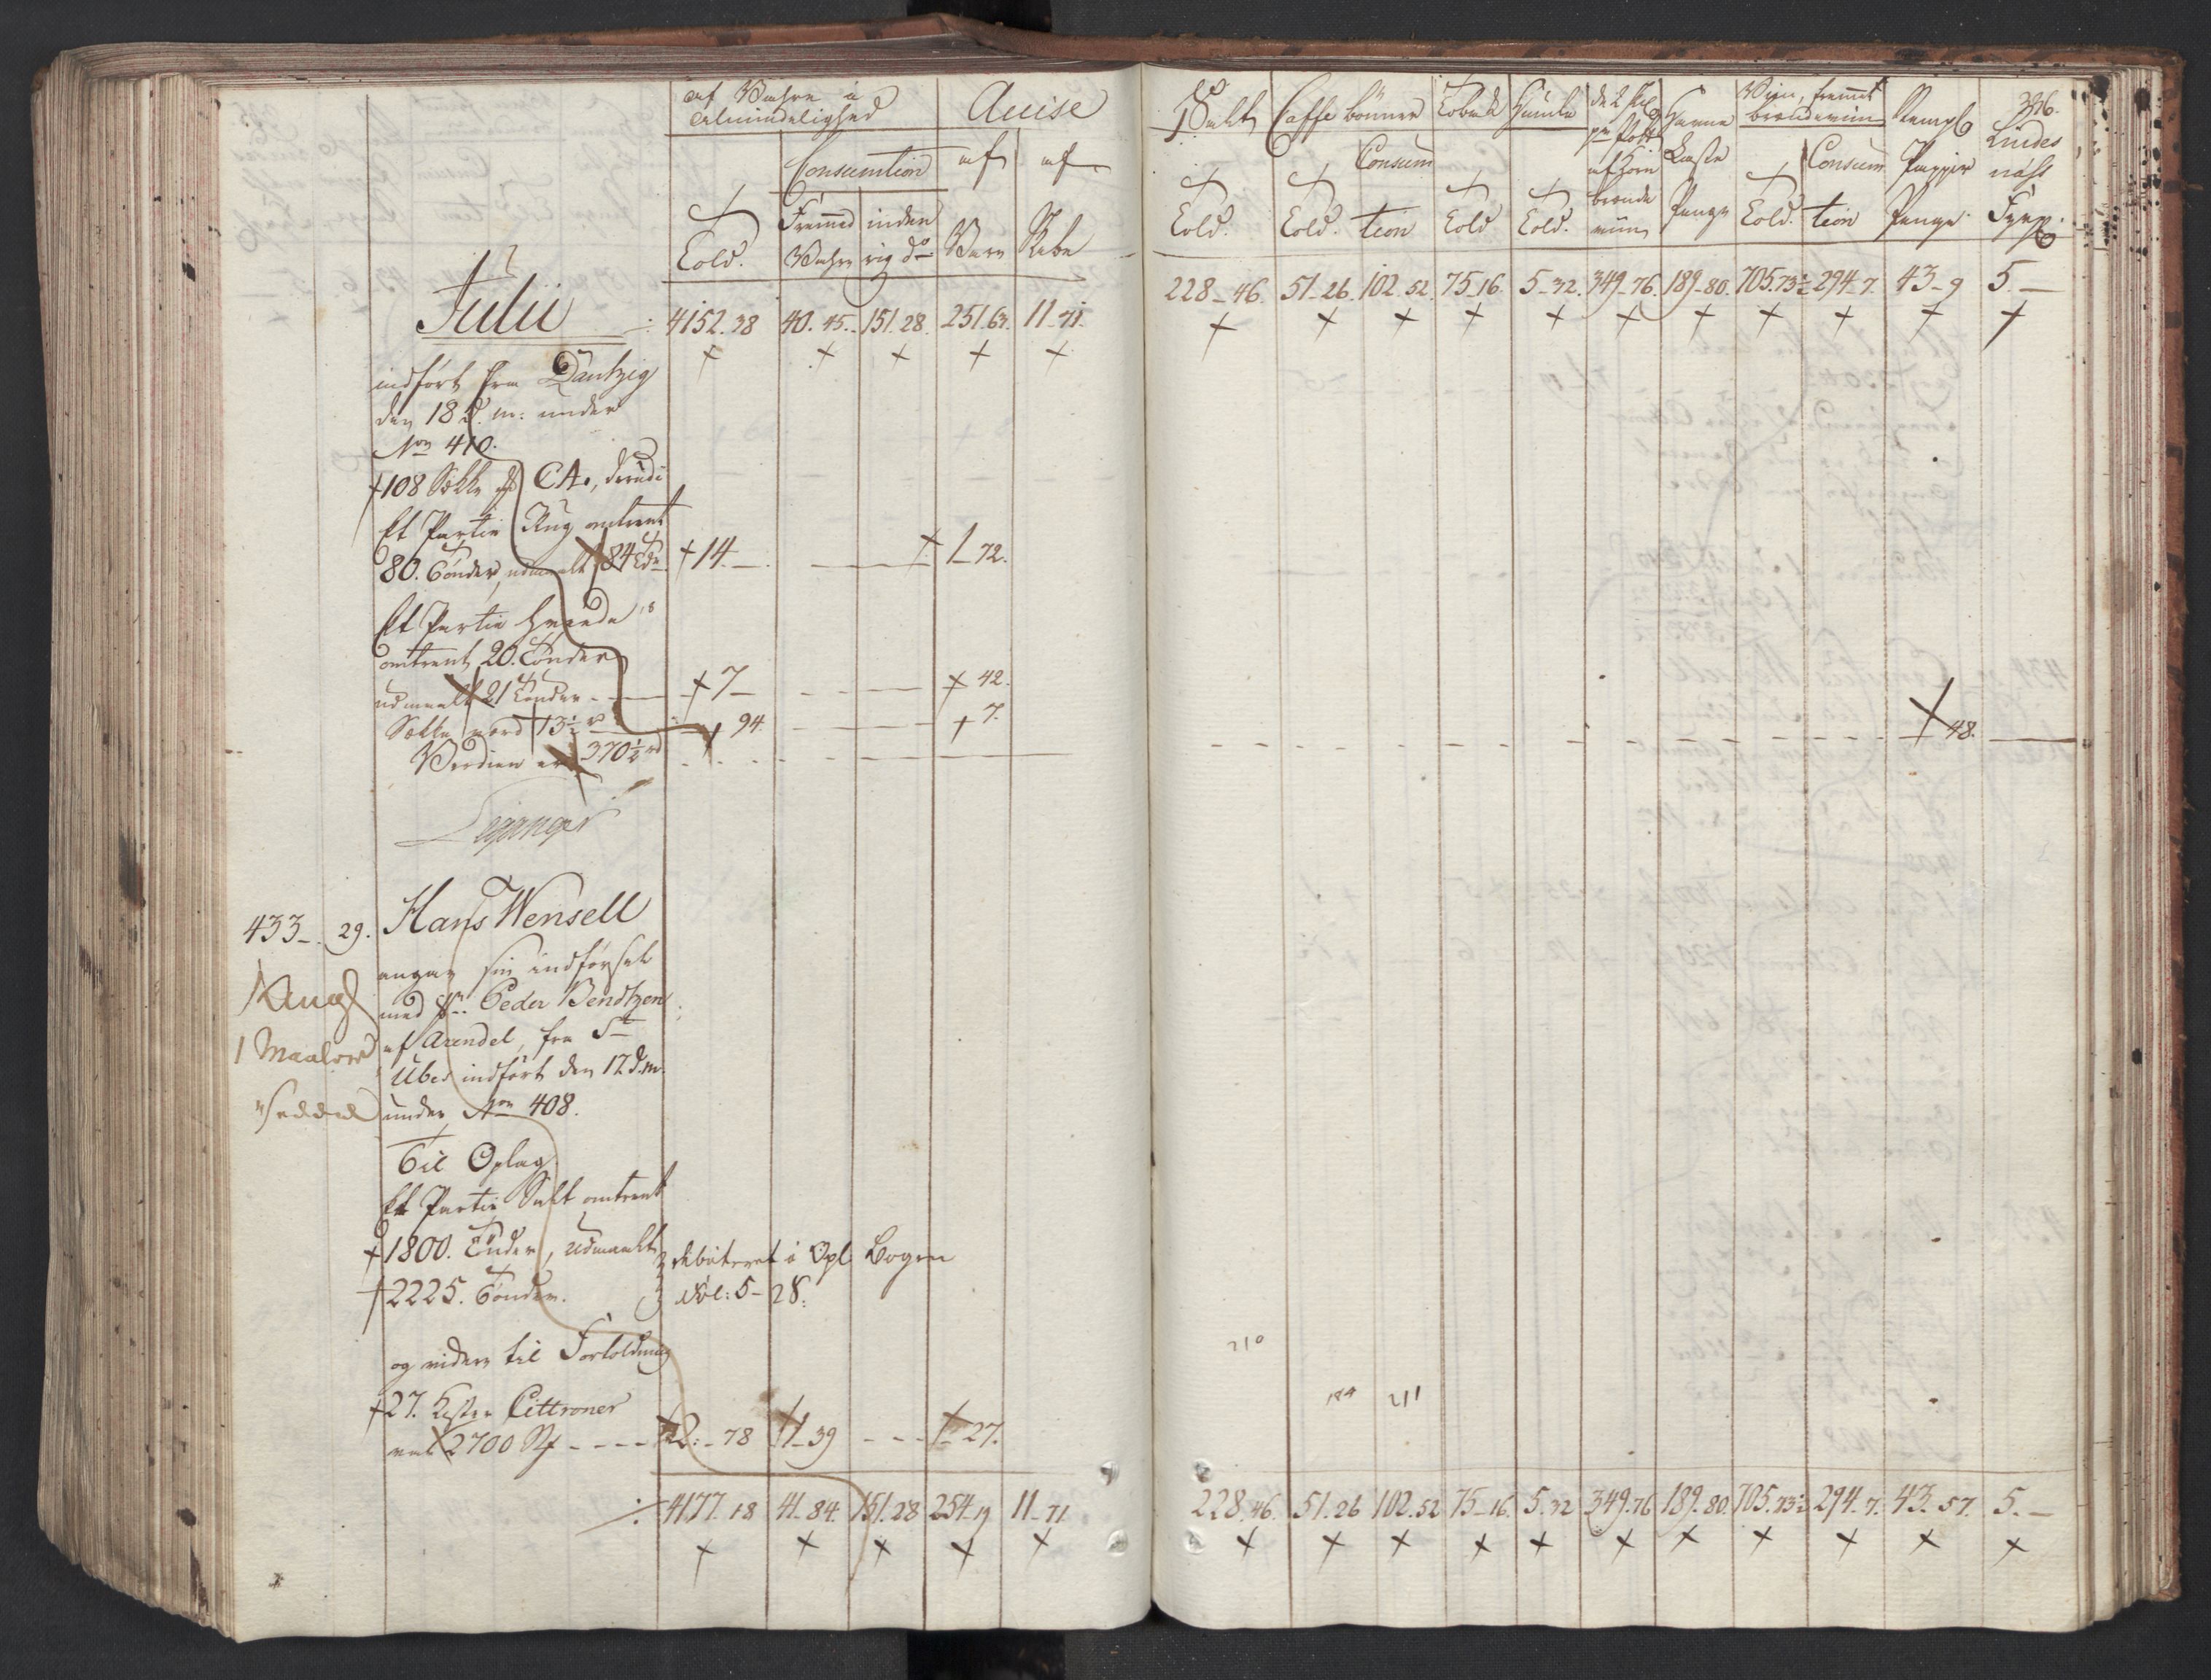 af Wahre i Almindelighed
Acise
Consumtion
af
af
Told.
Fremmed Wahre
inden rig do
Vare
Kebe
Julii
4152.38 40.45. 151.28. 251.63. 11-71.
indført fra Dantzig
den 18 d. m: under
No 410.
108 Sække CA., derudi
Et Partie Rug omtrent
80. Tønder, udmaalt 84 Tdr. 14.- 1-72.
Et Partie Hvede
omtrent 20. Tønder
udmaalt 21 Tønder 7- 42.
Sække værd 13½ rd 94. 7.
Verdien er 370½ rd
Leganger
433- 29. Hans Wensell
angav sin indførsel
med Sr. Peder Bendtzen
af Arendel, fra St
Ubes indført den 12 d. m.
under No 408.
1 Maaler
Seddel
Til Oplag
Et Partie Salt omtrent
1800. Tønder, udmaalt
2225. Tønder.
debiteret i Opl. Bogen
Fol: 5-28.
og videre til Fortoldning
27. Kister Cittroner
2700 2.-78 1-39 1-27.
4177.18 41.84. 151.28 254.19 11-71
Salt
Caffe bönner
Toback
Humle
de 2 pr Pott af Korn brændeviin
Havne Læste Penge
Viin, fremmet brændeviin
Stempl. Papiir Penge
326.
Lindesnæss Fyrp.
Told.
Told.
Consumtion
Told
Told.
Told.
Consumtion
228-46. 51-26. 102.52. 75-16. 5-32. 349-76. 189-80. 705.73½ 294-7. 43-9 5.-
48.
210
184 211
228.46. 51.26 102.52 75-16. 5.32 349.76 189.80. 705.73½ 294-7. 43.57. 5.-